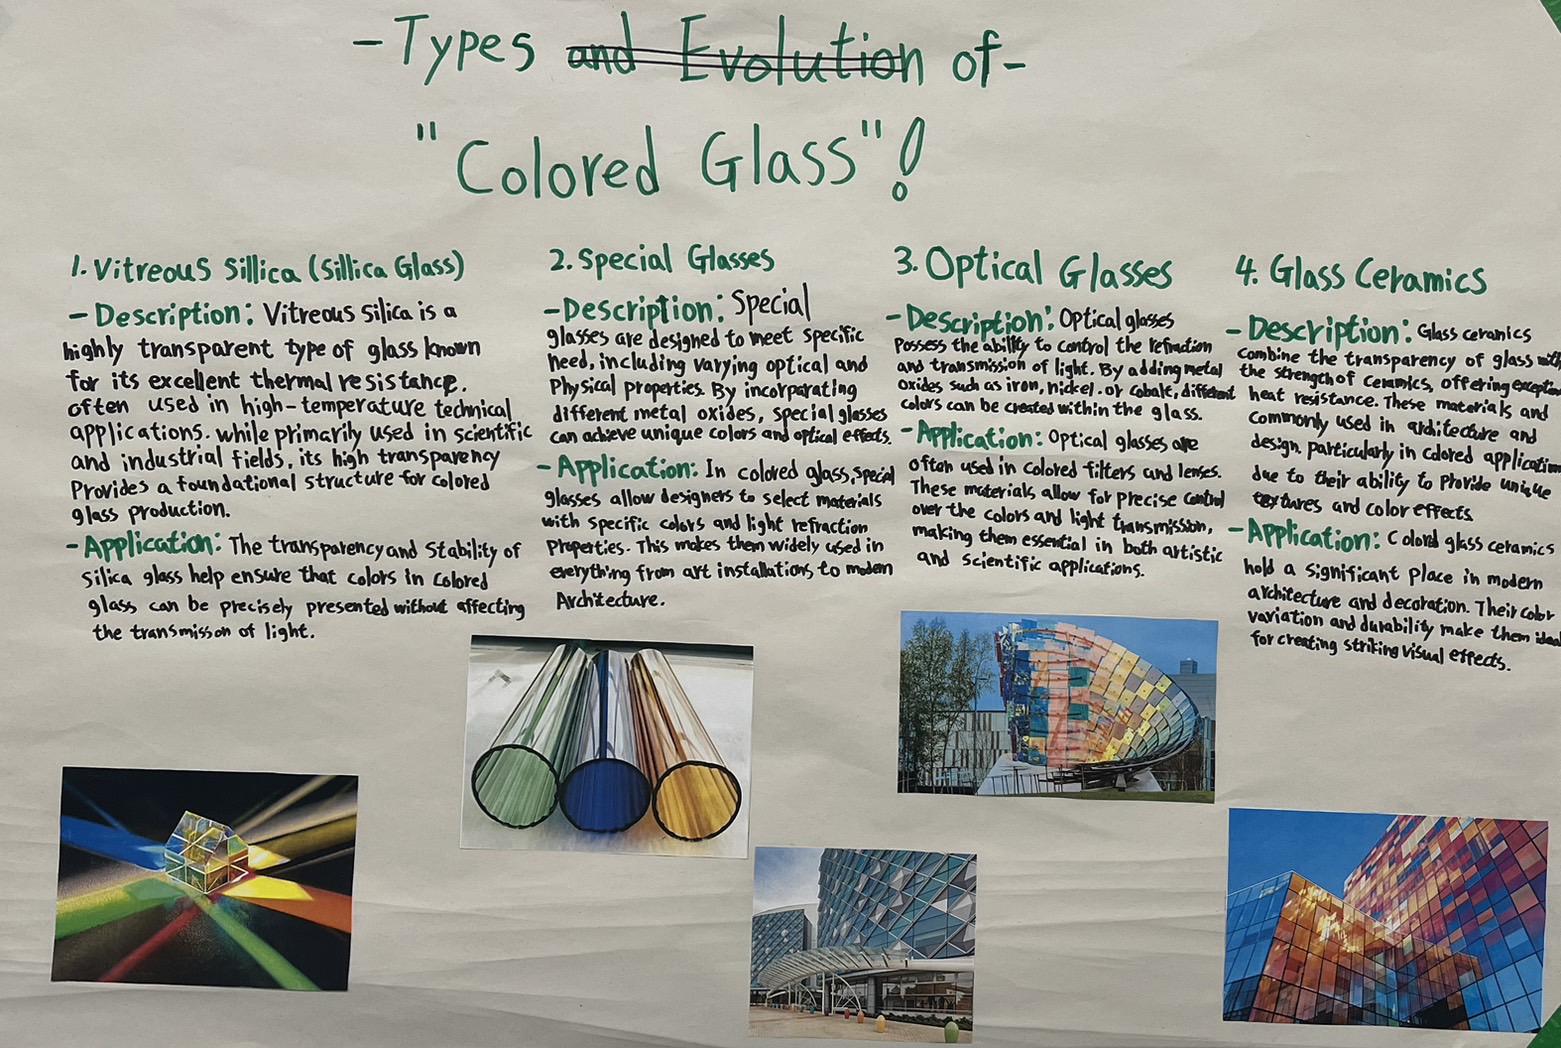 -Types and Evolution of-
"Colored Glass"!
1. Vitreous Sillica (Sillica Glass)
- Description: Vitreous silica is a
highly transparent type of glass known
for its excellent thermal resistance.
often used in high-temperature technical
applications. while primarily used in scientific
and industrial fields, its high transparency
Provides a foundational structure for colored
glass production.
- Application: The transparency and Stability of
Silica glass help ensure that colors in colored
glass can be precisely presented without affecting
the transmission of light.
2. Special Glasses
- Description: Special
glasses are designed to meet specific
need, including varying optical and
Physical properties. By incorparating
different metal oxides, special glasses
can achieve unique colors and optical effects.
- Application: In colored glass, special
glasses allow designers to select materials
with specific colors and light refraction
Properties. This makes them widely used in
everything from art installations to modern
Architecture.
3. Optical Glasses
- Description: Optical glasses
Possess the ability to control the refraction
and transmission of light. By adding metal
oxides such as iron, nickel. or cobalt, different
colors can be created within the glass.
- Application: Optical glasses are
often used in colored filters and lenses.
These materials allow for precise control
over the colors and light transmission,
making them essential in both artistic
and scientific applications.
4. Glass Ceramics
- Description: Glass ceramics
combine the transparency of glass with
the strength of ceramics, offering exception
heat resistance. These materials and
commonly used in architecture and
design, particularly in colored application
due to their ability to provide unique
textures and color effects.
- Application: Colored glass ceramics
hold a significant place in modern
architecture and decoration. Their color
variation and durability make them ideal
for creating striking visual effects.